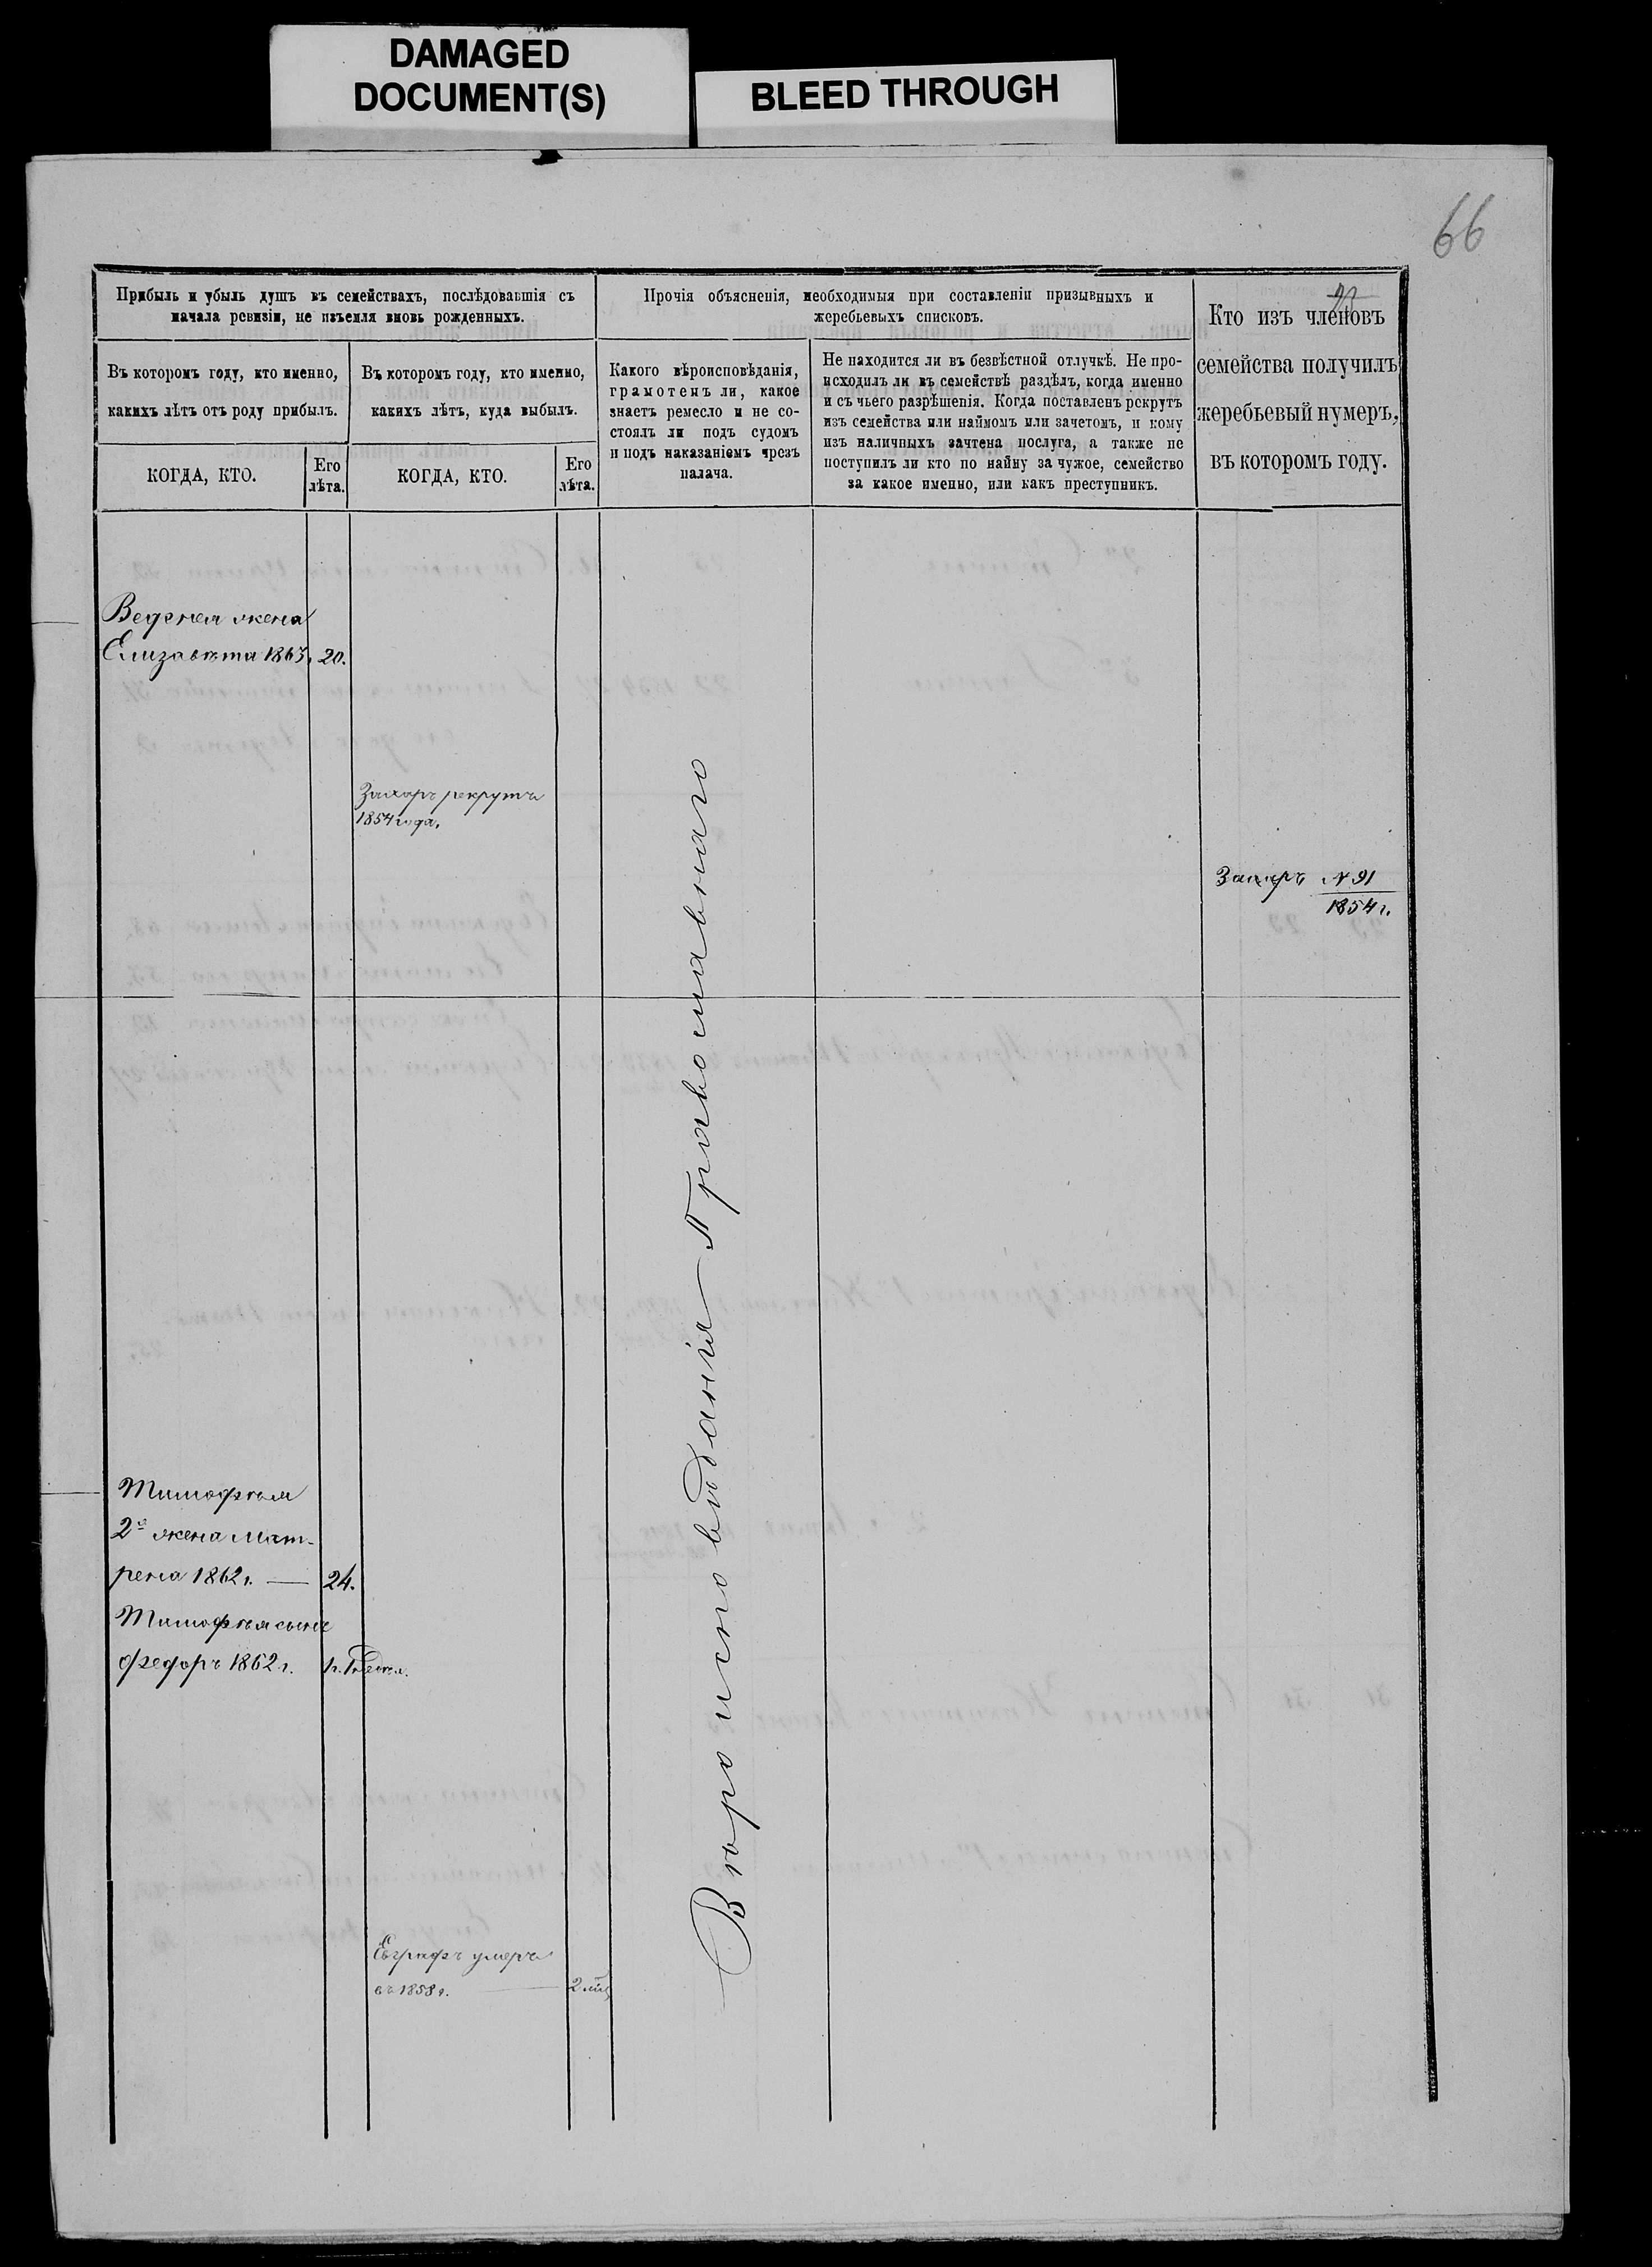 DAMAGED
DOCUMENT(S)
BLEED THROUGH
66
Прибыль и убыль душъ въ семействахъ, послѣдовавшія съ
начала ревизіи, не изъемля вновь рожденныхъ.
Въ которомъ году, кто именно,
какихъ лѣтъ отъ роду прибылъ.
Въ которомъ году, кто именно,
какихъ лѣтъ, куда выбылъ.
КОГДА, КТО.
Его
лѣта.
КОГДА, КТО.
Его
лѣта.
Прочія объясненія, необходимыя при составленіи призывныхъ и
жеребьевыхъ списковъ.
Какого вѣроисповѣданія,
грамотенъ ли, какое
знаетъ ремесло и не со-
стоялъ ли подъ судомъ
и подъ наказаніемъ чрезъ
палача.
Не находится ли въ безвѣстной отлучкѣ. Не про-
исходилъ ли въ семействѣ раздѣлъ, когда именно
и съ чьего разрѣшенія. Когда поставленъ рекрутъ
изъ семейства или наймомъ или зачетомъ, и кому
изъ наличныхъ зачтена послуга, а также не
поступилъ ли кто по найму за чужое, семейство
за какое именно, или какъ преступникъ.
Кто изъ членовъ
семейства получилъ
жеребьевый нумеръ,
въ которомъ году.
Веденея жена
Елизавѣта 1863, 20.
Захаръ рекрутъ
1854 года.
Захаръ N 91
1854 г.
Вѣроисповѣданія Православнаго
Тимофѣя
2я жена Мат-
рена 1862 г. — 24.
Тимофѣя сынъ
Федоръ 1862 г.
Евграфъ умеръ
въ 1858 г. — 2